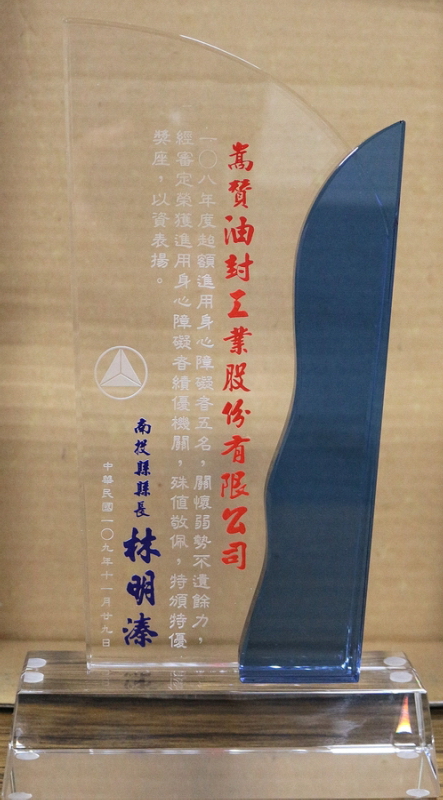 嵩贊油封工業股份有限公司
一〇八年度超額進用身心障礙者五名，關懷弱勢不遺餘力，
經審定榮獲進用身心障礙者績優機關，殊值敬佩，特頒特優
獎座，以資表揚。
南投縣縣長 林明溱
中華民國一〇九年十一月廿九日